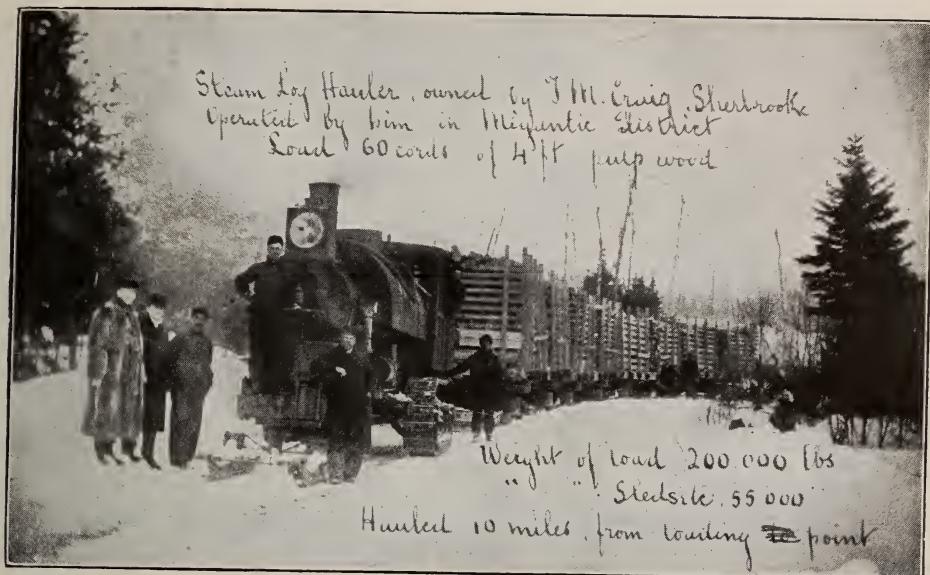 Steam Log Hauler, owned by J M. Craig, Sherbrooke
Operated by him in Migantic District
Load 60 cords of 4 ft pulp wood
Weight of Load 200.000 lbs
" " Sleds etc, 55 000
Hauled 10 miles, from loading point